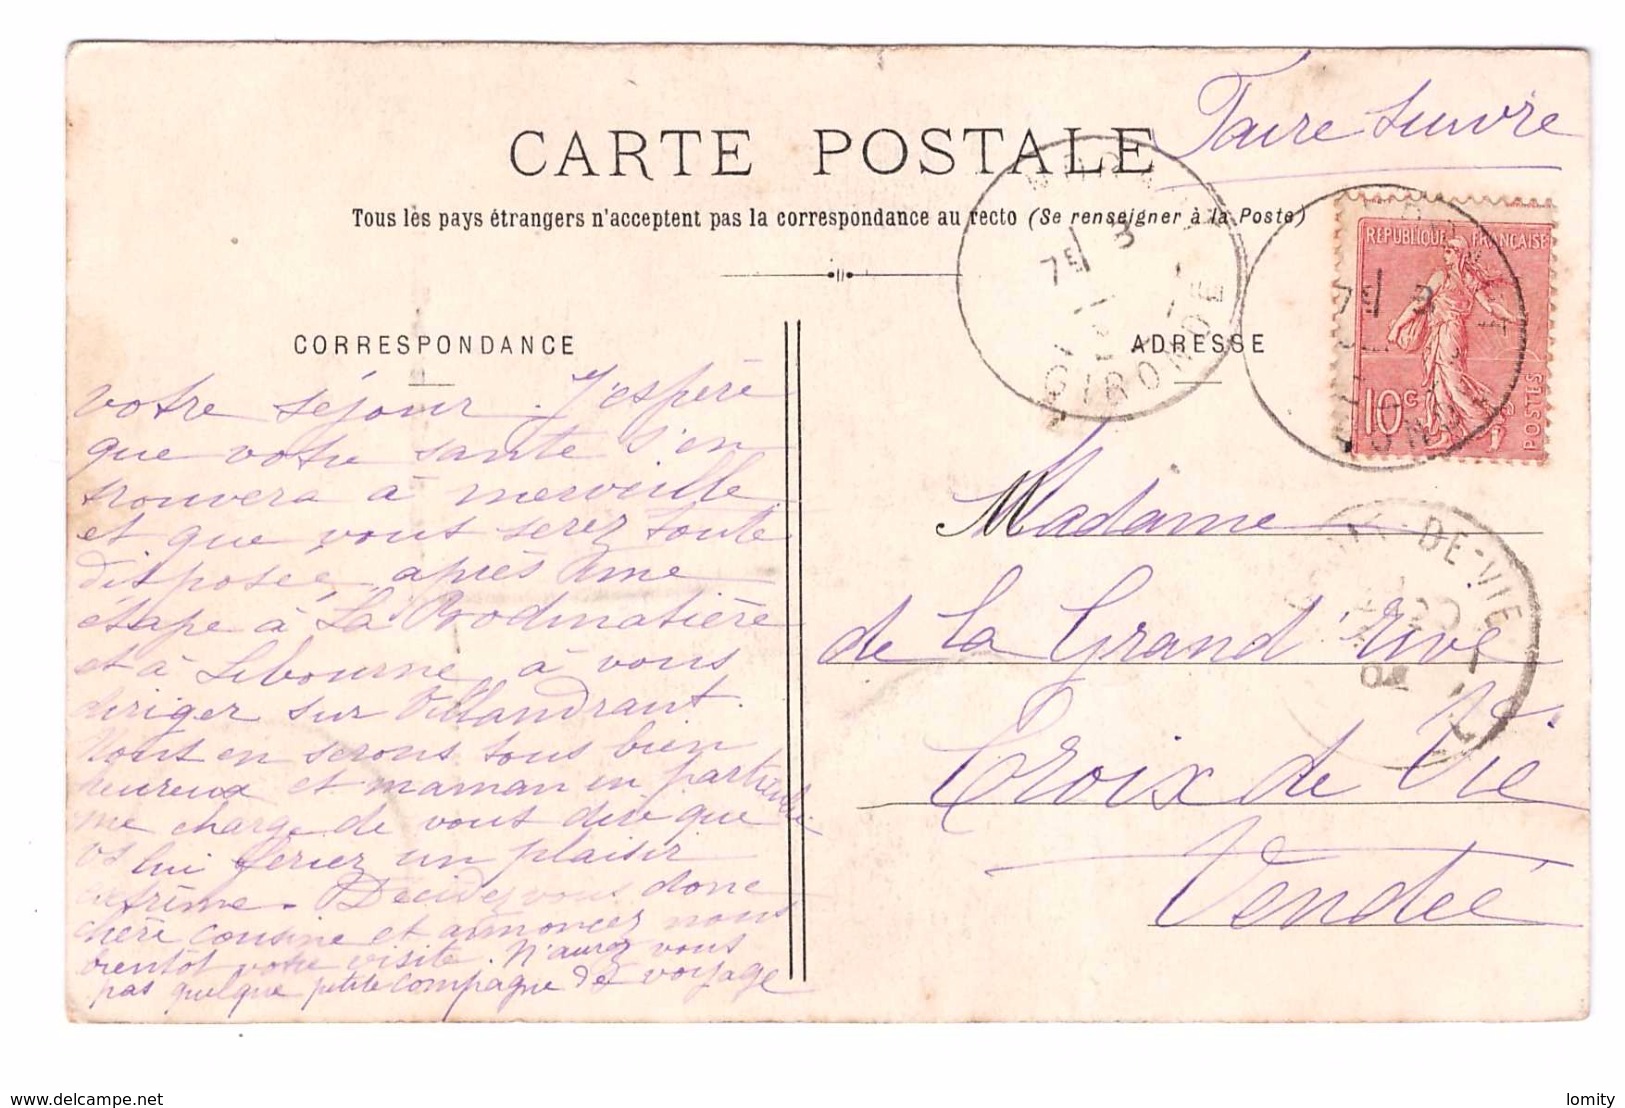 Faire suivre
CARTE POSTALE
Tous les pays étrangers n'acceptent pas la correspondance au recto (Se renseigner à la Poste)
RÉPUBLIQUE FRANÇAISE
10c
POSTES
7E 3
GIRONDE
7E 3
CORRESPONDANCE
votre séjour. J'espère
que votre santé s'en
trouvera à merveille
et que vous serez toute
disposée, après une
étape à La
et à Libourne, à vous
diriger sur Villandraut.
Nous en serons tous bien
heureux et maman en particulier
me charge de vous dire que
vs lui feriez un plaisir
extrême. Décidez vous donc
chère cousine et annoncez nous
bientôt votre visite. N'aurez vous
pas quelque petite compagne de voyage
ADRESSE
Madame
de La Grand'rive
Croix de Vie
Vendée
-DE-VIE
04
delcampe.net
lomity